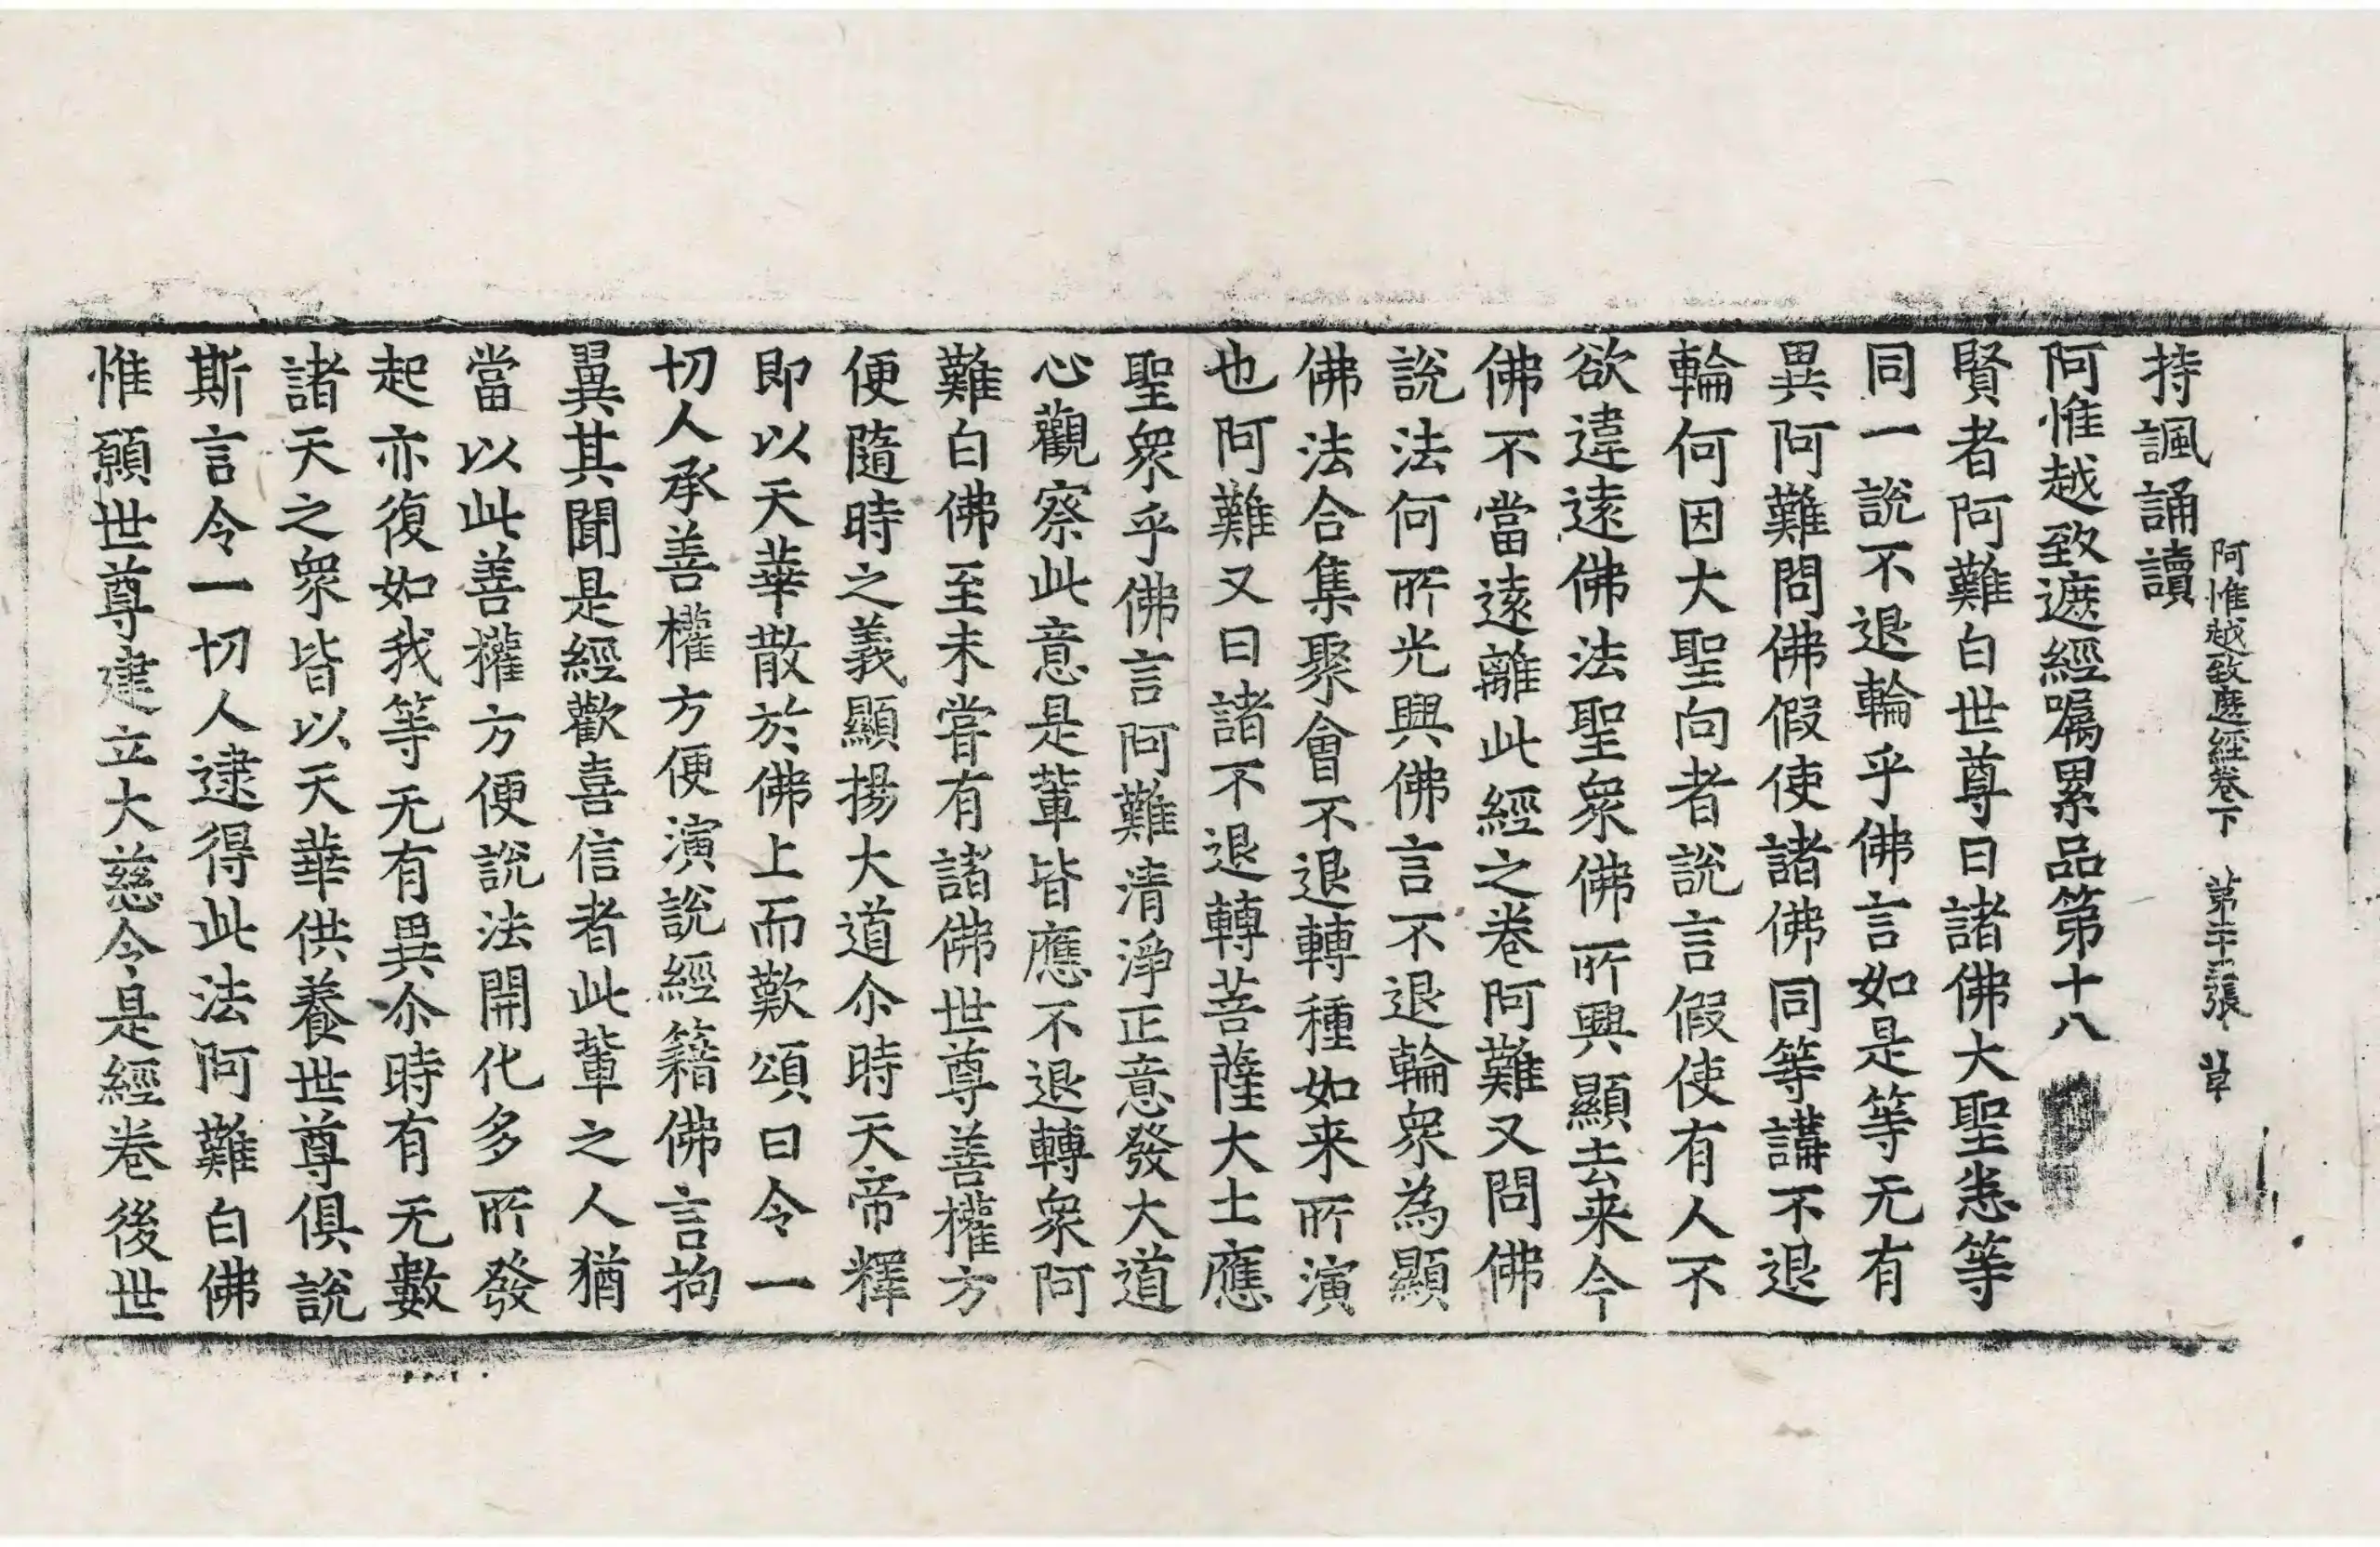 阿惟越致遮經卷下 第二十三張 草
持諷誦讀
阿惟越致遮經嘱累品第十八
賢者阿難白世尊曰諸佛大聖悉等
同一說不退輪乎佛言如是等无有
異阿難問佛假使諸佛同等講不退
輪何因大聖向者說言假使有人不
欲違遠佛法聖衆佛所興顯去来今
佛不當遠離此經之卷阿難又問佛
說法何所光興佛言不退輪衆為顯
佛法合集聚會不退轉種如来所演
也阿難又曰諸不退轉菩薩大士應
聖衆乎佛言阿難清淨正意發大道
心觀察此意是輩皆應不退轉衆阿
難白佛至未嘗有諸佛世尊善權方
便隨時之義顯揚大道尒時天帝釋
即以天華散於佛上而歎頌曰令一
切人承善權方便演說經籍佛言拘
翼其聞是經歡喜信者此輩之人猶
當以此善權方便說法開化多所發
起亦復如我等无有異尒時有无數
諸天之衆皆以天華供養世尊俱說
斯言令一切人逮得此法阿難白佛
惟願世尊建立大慈令是經卷後世